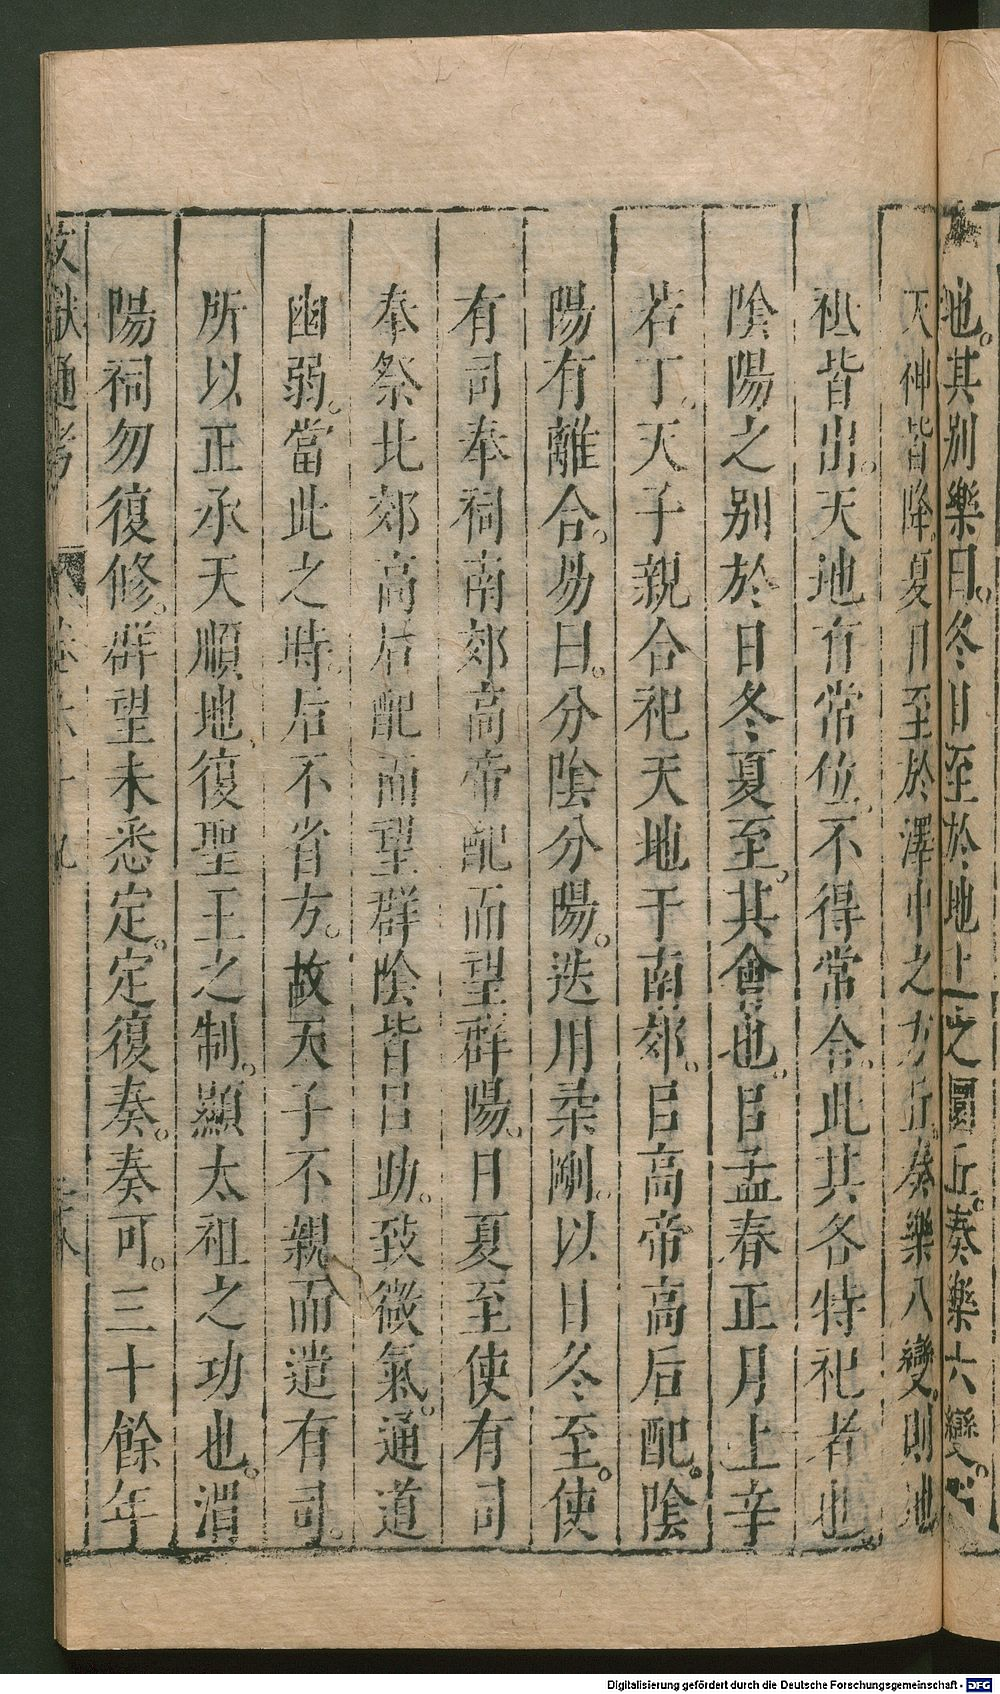 地。其别樂曰。冬日至於地上之圜丘。奏樂六變。
天神皆降。夏日至於澤中之方丘。奏樂八變。則地
祗皆出。天地有常位。不得常合。此其各特祀者也。
陰陽之别於日冬夏至。其會也。㠯孟春正月上辛
若丁。天子親合祀天地于南郊。㠯高帝高后配。陰
陽有離合。易曰。分陰分陽。迭用柔剛。以日冬至。使
有司奉祠南郊高帝配而望群陽。日夏至使有司
奉祭北郊高后配而望群陰皆㠯助。致微氣。通道
幽弱。當此之時。后不省方。故天子不親而遣有司。
所以正承天順地。復聖王之制。顯太祖之功也。渭
陽祠勿復修。群望未悉定。定復奏。奏可。三十餘年
文獻通考 卷六十九 二八
Digitalisierung gefördert durch die Deutsche Forschungsgemeinschaft - DFG